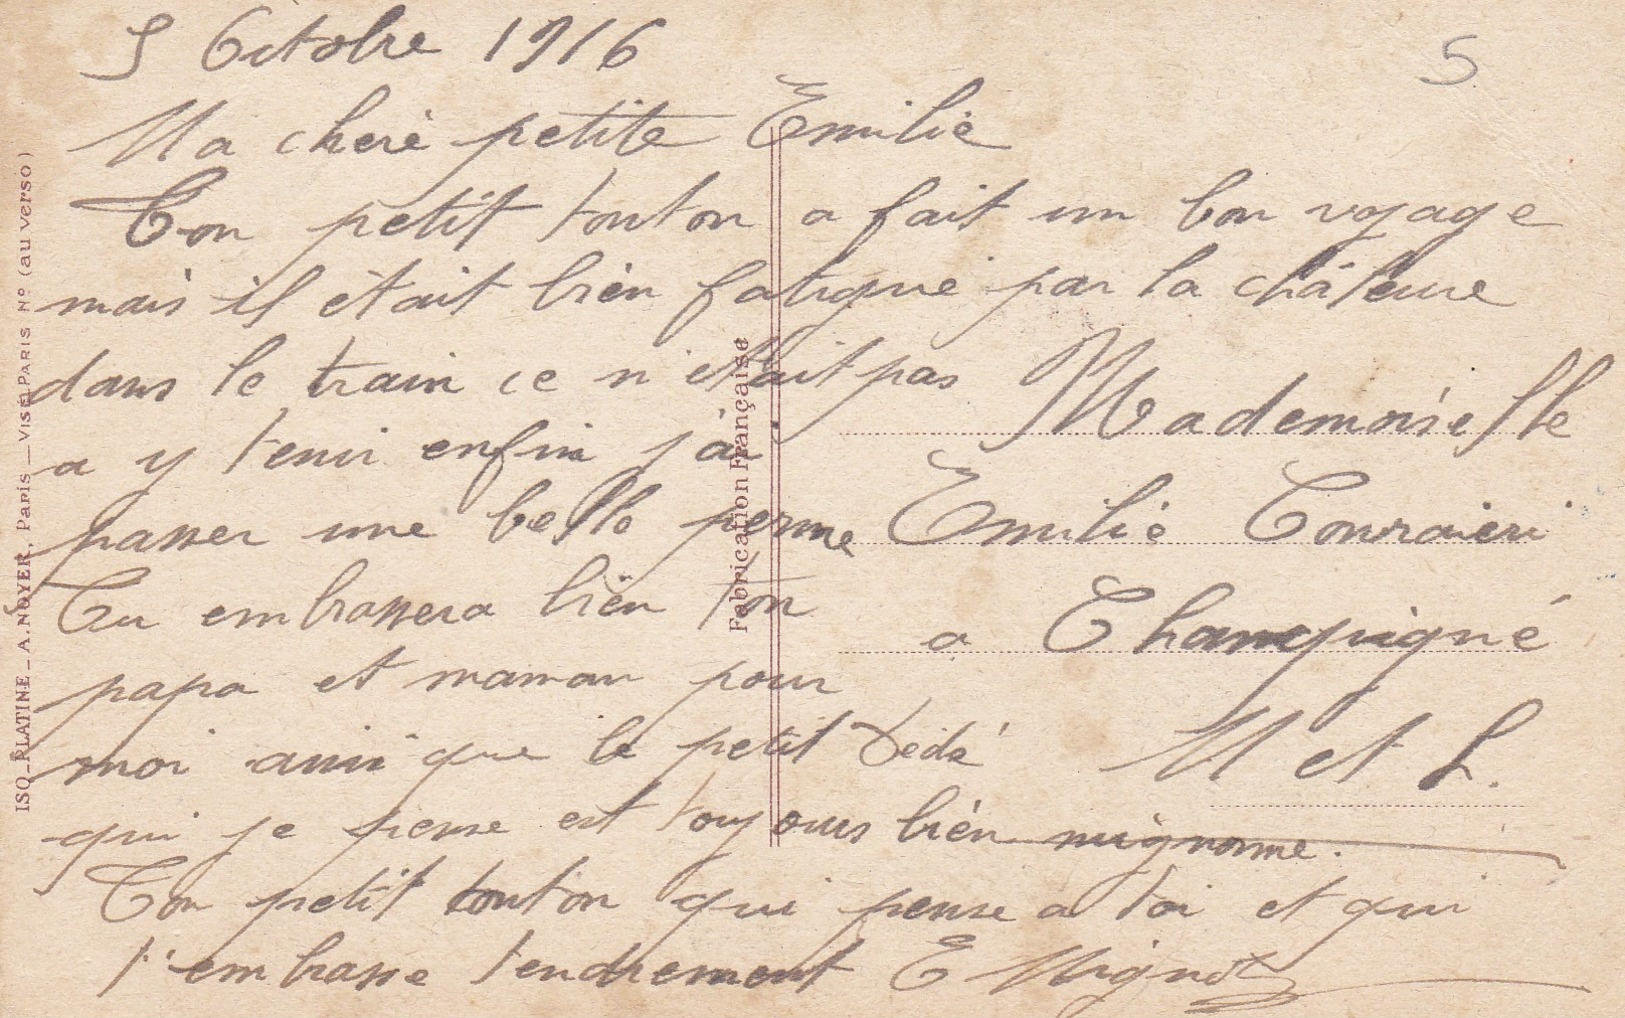 5 Octobre 1916
5
Ma cheré petite Emilie
Ton petit tonton a fait un bon voyage
mais il était bien fatigué par la châleure
dans le train ce n'était pas
a y tenir enfin j'ai
passer une belle perme
Tu embrassera bien ton
papa et maman pour
moi ainsi que le petit Dédé
qui je pense est toujours bien mignonne.
Ton petit tonton qui pense a toi et qui
t'embrasse tendrement E Mignot
Mademoiselle
Emilie
a Champigné
M et L.
ISO_PLATINE_ A.NOYER, Paris _ VISÉ PARIS Nº (au verso)
Fabrication Française